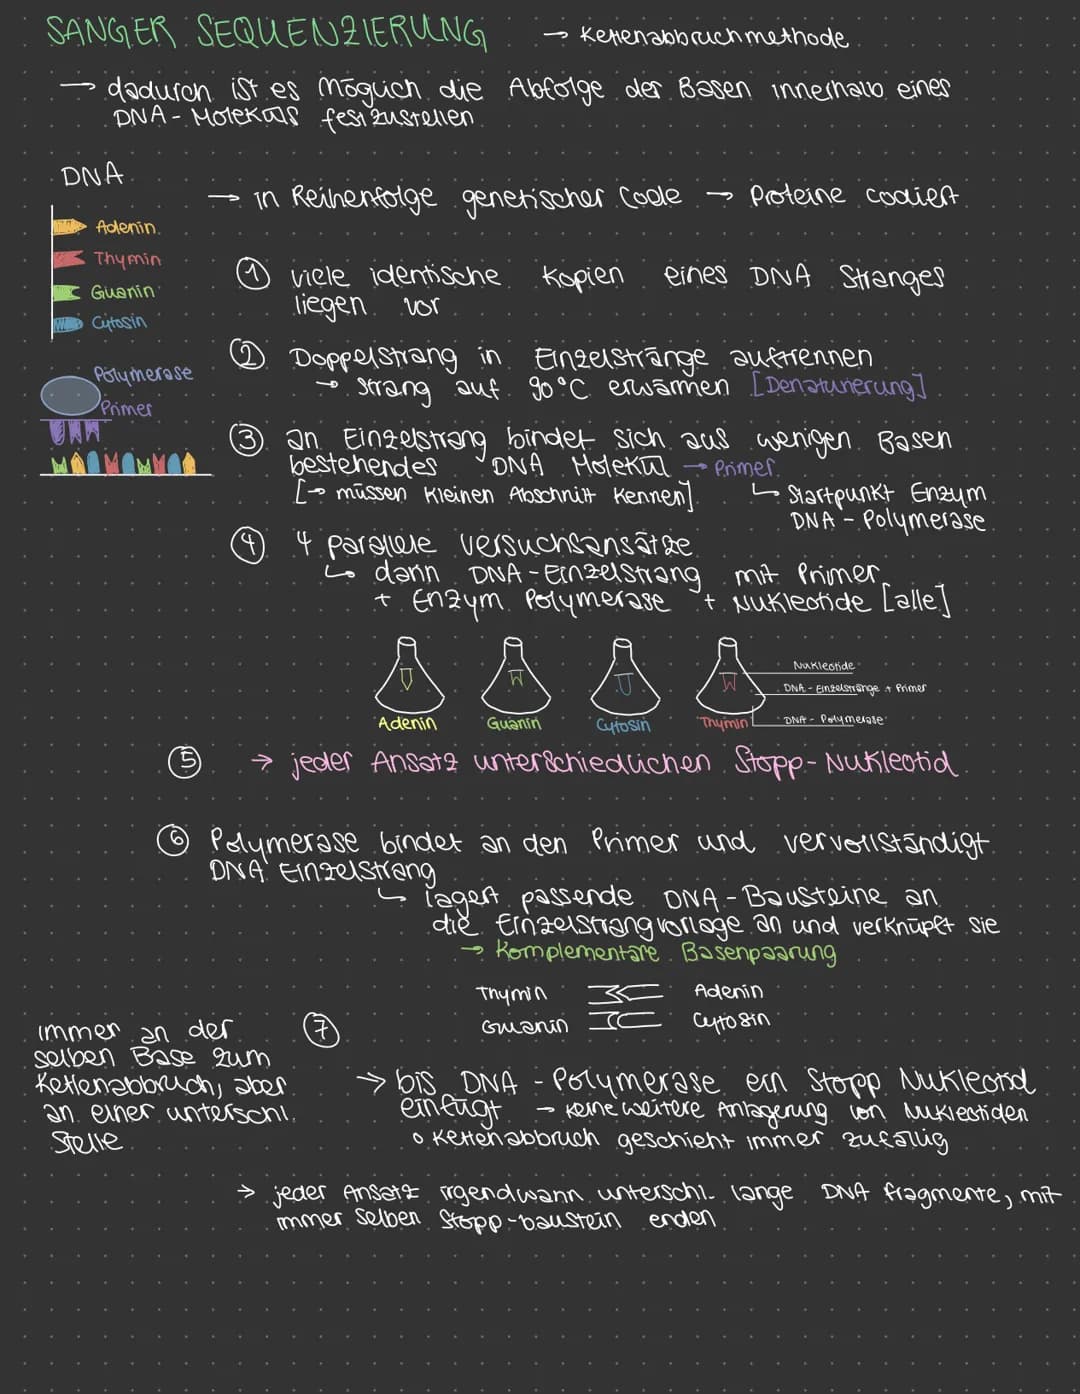 SANGER SEQUENZIERUNG → Kettenabbruchmethode
→ dadurch ist es möglich die Abfolge der Basen innerhalb eines
DNA-Moleküls festzustellen
DNA
→ in Reihenfolge genetischer Code → Proteine codiert
Adenin
Thymin
Guanin
Cytosin
① viele identische Kopien eines DNA Stranges
liegen vor
② Doppelstrang in Einzelstränge auftrennen
→ Strang auf 90°C erwärmen [Denaturierung]
Polymerase
Primer
③ an Einzelstrang bindet sich aus wenigen Basen
bestehendes DNA Molekül → Primer
[→ müssen kleinen Abschnitt kennen] ↳ Startpunkt Enzym
DNA-Polymerase
④ 4 parallele Versuchsansätze
↳ darin DNA-Einzelstrang mit Primer
+ Enzym Polymerase + Nukleotide [alle]
Nukleotide
DNA-Einzelstränge + Primer
DNA-Polymerase
Adenin Guanin Cytosin Thymin
⑤ → jeder Ansatz unterschiedlichen Stopp-Nukleotid
⑥ Polymerase bindet an den Primer und vervollständigt
DNA Einzelstrang
↳ lagert passende DNA-Bausteine an
die Einzelstrangvorlage an und verknüpft sie
→ Komplementäre Basenpaarung
Thymin Adenin
Guanin Cytosin
immer an der
selben Base zum
Kettenabbruch, aber
an einer unterschl.
Stelle
⑦
→ bis DNA-Polymerase ein Stopp Nukleotid
einfügt → keine weitere Anlagerung von Nukleotiden
o Kettenabbruch geschieht immer zufällig
→ jeder Ansatz irgendwann unterschl. lange DNA fragmente, mit
immer selben Stopp-baustein enden